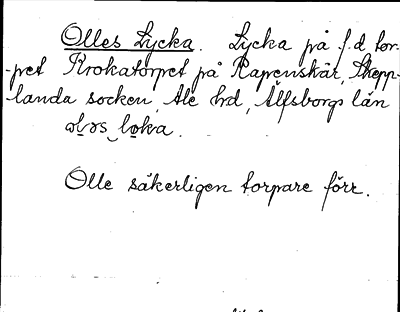 Olles Lycka. Lycka på f.d tor-
-pet Krokatorpet på Rapenskär, Skepp-
landa socken, Ale hd, Älfsborgs län
Olle säkerligen torpare förr.